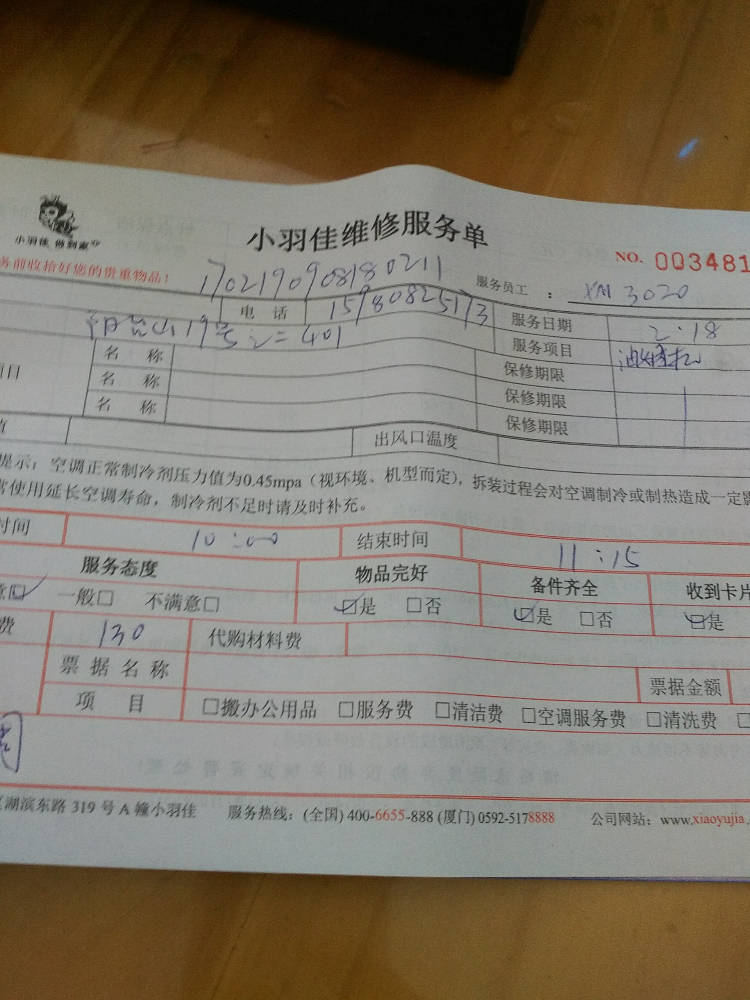 小羽佳 做到家
小羽佳维修服务单
NO. 003481
务前收拾好您的贵重物品！
1702190908180211
服务员工 ： XM 3020
电 话 15980825173 服务日期 2·18
19号 401
名 称 服务项目 油烟机
名 称 保修期限
名 称 保修期限
保修期限
出风口温度
提示：空调正常制冷剂压力值为0.45mpa（视环境、机型而定），拆装过程会对空调制冷或制热造成一定影
使用延长空调寿命，制冷剂不足时请及时补充。
时间 10:00 结束时间 11:15
服务态度 物品完好 备件齐全 收到卡片
意☑ 一般□ 不满意□ ☑是 □否 ☑是 □否 ☑是
费 130 代购材料费
票据名称 票据金额
项 目 □搬办公用品 □服务费 □清洁费 □空调服务费 □清洗费
湖滨东路 319 号 A 幢小羽佳 服务热线：(全国) 400-6655-888 (厦门) 0592-5178888 公司网站：www.xiaoyujia.